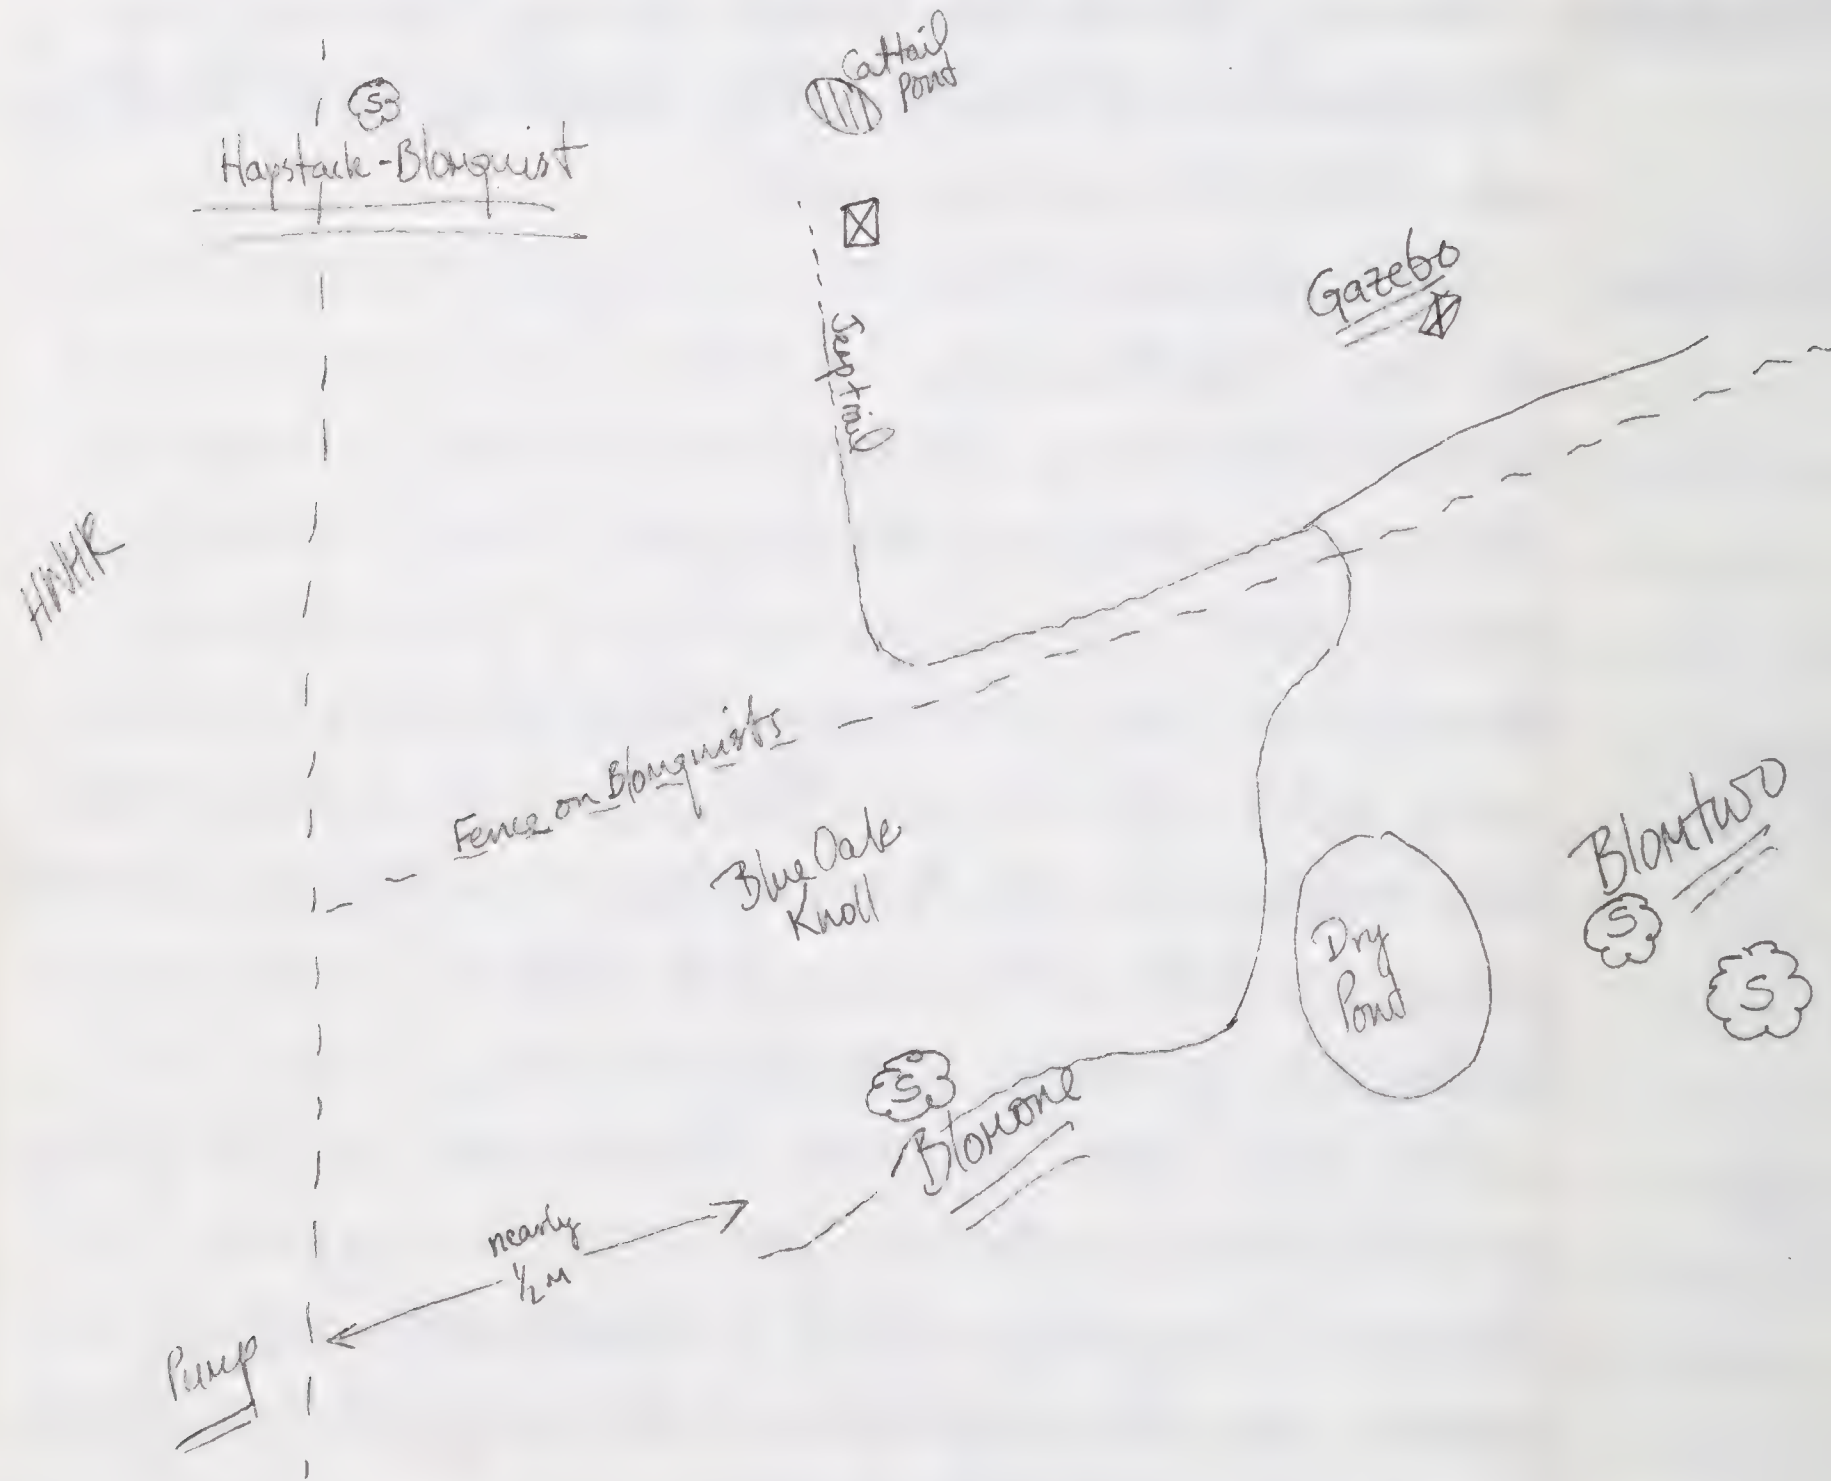 Cattail
Pond
S
Haystack-Blomquist
Gazebo
Jeeptrail
HNHR
Fence on Blomquists
Blue Oak
Knoll
Blomtwo
S
S
Dry
Pond
S
Blomone
nearly
1/2 M
Pump